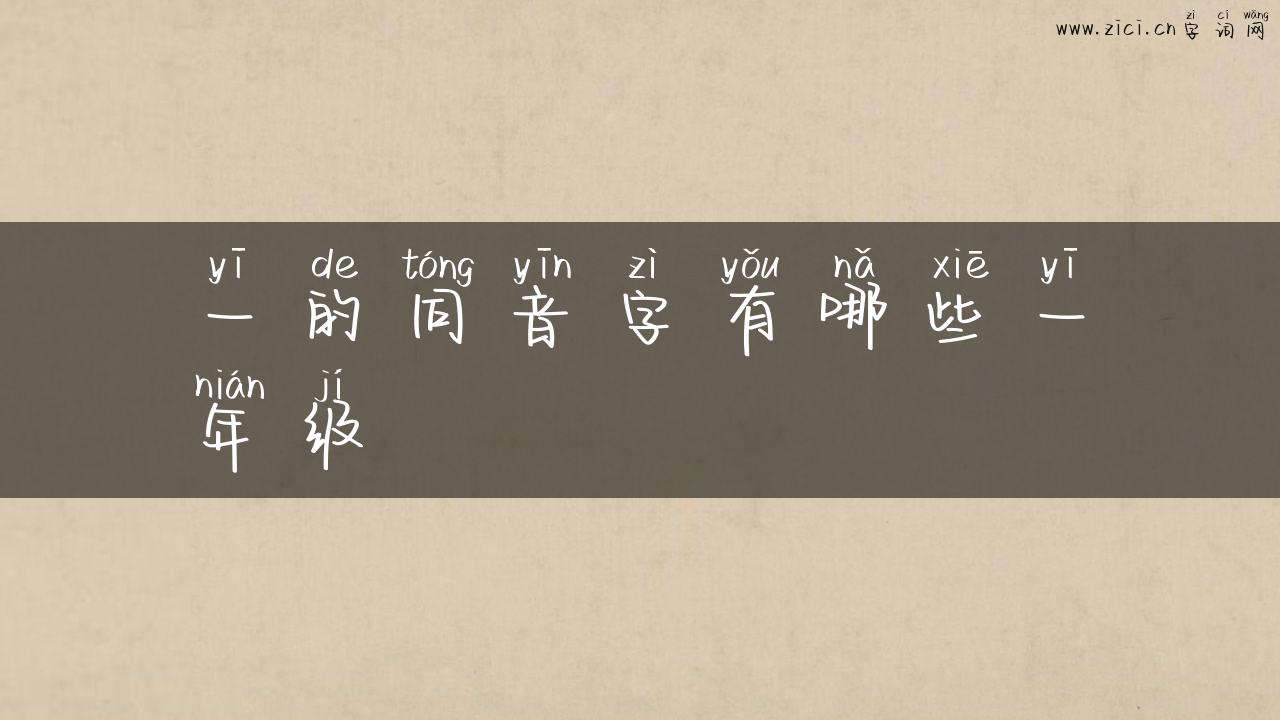 zì cí wǎng
www.zici.cn 字词网
yī de tóng yīn zì yǒu nǎ xiē yī
一的同音字有哪些一
nián jí
年级